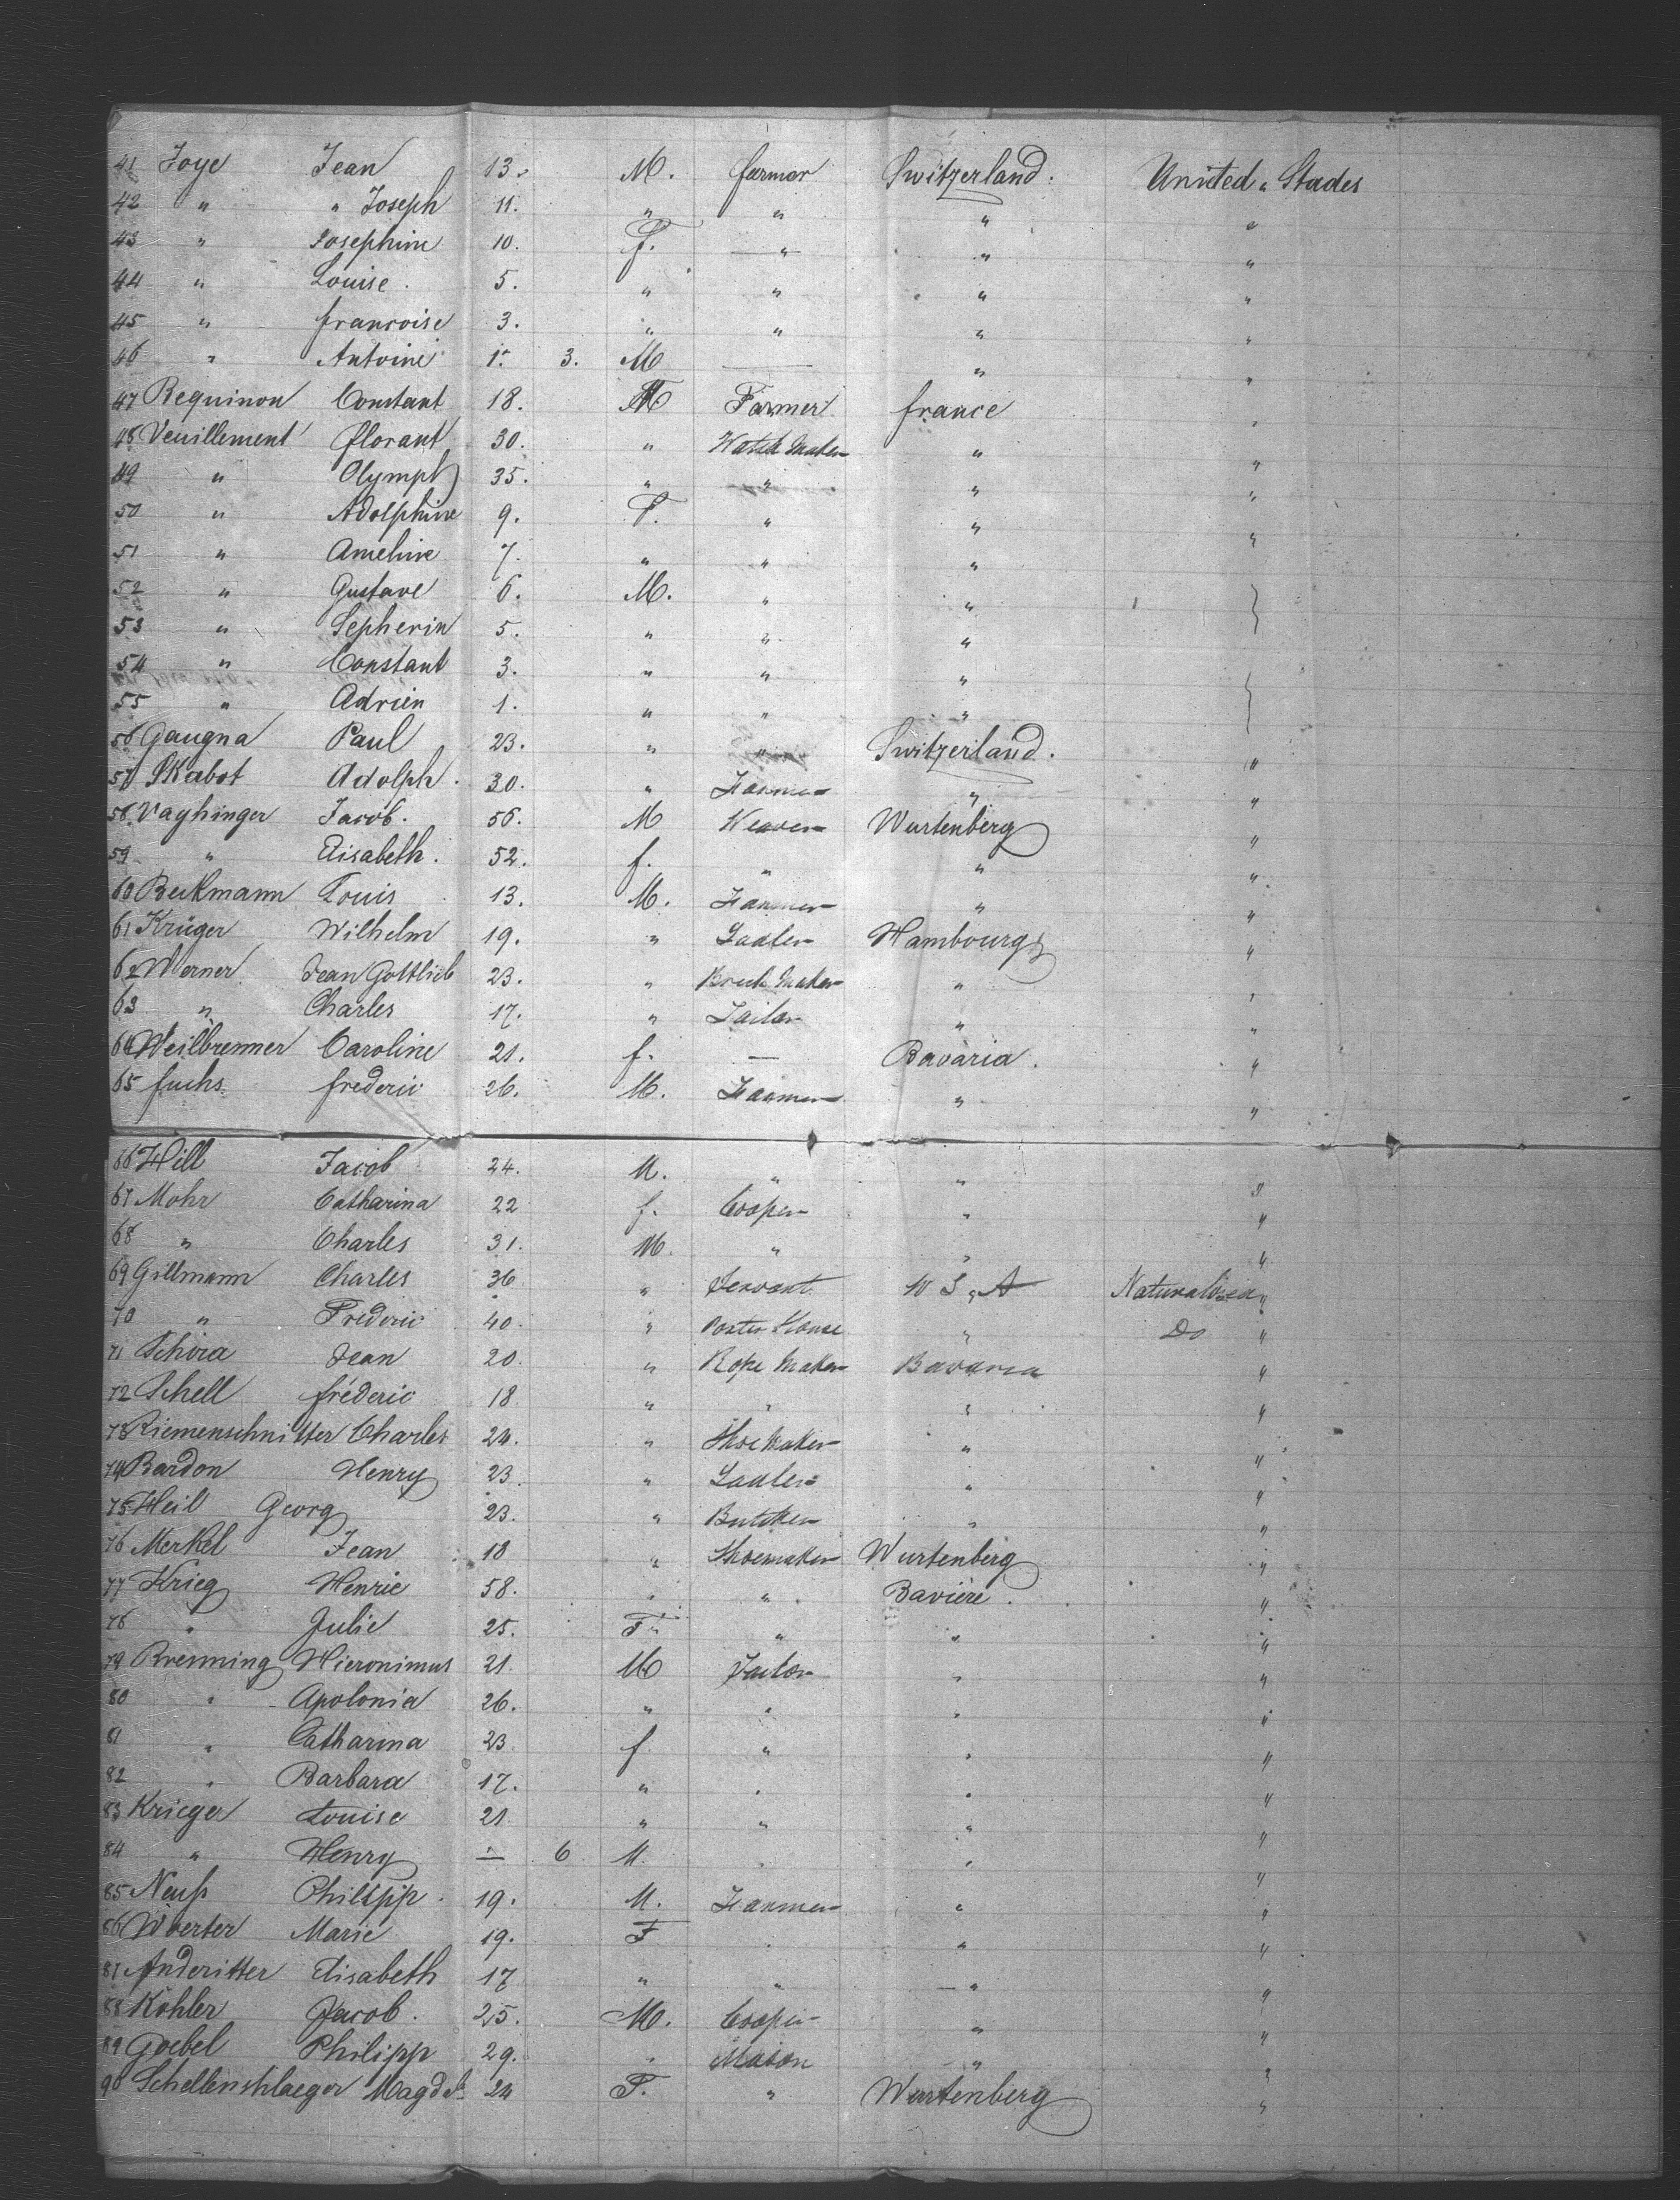 41 Joye Jean 13. M. farmer Switzerland. United " Stades
42 " " Joseph 11. " " " "
43 " Josephine 10. f. " " "
44 " Louise. 5. " " " "
45 " francoise 3. " " " "
46 " Antoine 1. 3. M — " "
47 Requinon Constant 18. M Farmer france "
48 Veuillement florant 30. " Watch Maker " "
49 " Olymph 35. " " " "
50 " Adolphine 9. F. " " "
51 " Ameline 7. " " " "
52 " Gustave 6. M. " "
53 " Sepherin 5. " " "
54 " Constant 3. " " "
55 " Adrien 1. " " "
56 Gaugna Paul 23. " " Switzerland. "
57 Skabot Adolph. 30. " Farmer " "
58. Vaghinger Jacob. 56. M Weaver Wurtenberg "
59 " Elisabeth. 52. f. " " "
60 Beckmann Louis 13. M. Farmer " "
61 Krüger Wilhelm 19. " Sadler Hambourg "
62 Werner Jean Gottlieb 23. " Brick Maker " "
63 " Charles 17. " Tailor " "
64 Weilbrenner Caroline 21. f. — Bavaria. "
65 fuchs frederic 26. M. Farmer " "
66 Hill Jacob 24. M. " " "
67 Mohr Catharina 22 f. Cooper " "
68 " Charles 31. M. " " "
69 Gillmann Charles 36 " Servant U S A Naturalised "
70 " Frederic 40. " Porter House " Do "
71 Schira Jean 20. " Rope Maker Bavaria "
72 Schell fréderic 18 " " " "
73 Riemenschnitter Charles 24. " Shoe Maker " "
74 Bardon Henry 23 " Sadler " "
75 Heil Georg 23. " Butcher " "
76 Merkel Jean 18 " Shoemaker Wurtenberg "
77 Krieg Henrie 58. " " Baviere. "
78 " Julie 25. F " " "
79 Brenning Hieronimus 21. M Tailor " "
80 " Apolonia 26. " " " "
81 " Catharina 23 f " " "
82 " Barbara 17. " " " "
83 Krieger Louise 21 " " " "
84 " Henry — 6 M. " " "
85 Neuß Philipp. 19. M. Farmer " "
86 Woerter Marie 19. F " " "
87 Anderitter Elisabeth 17 " " " "
88 Köhler Jacob. 25. M. Cooper " "
89 Goebel Philipp 29. " Mason " "
90 Schellenschlaeger Magde. 24 F. " Wurtenberg "